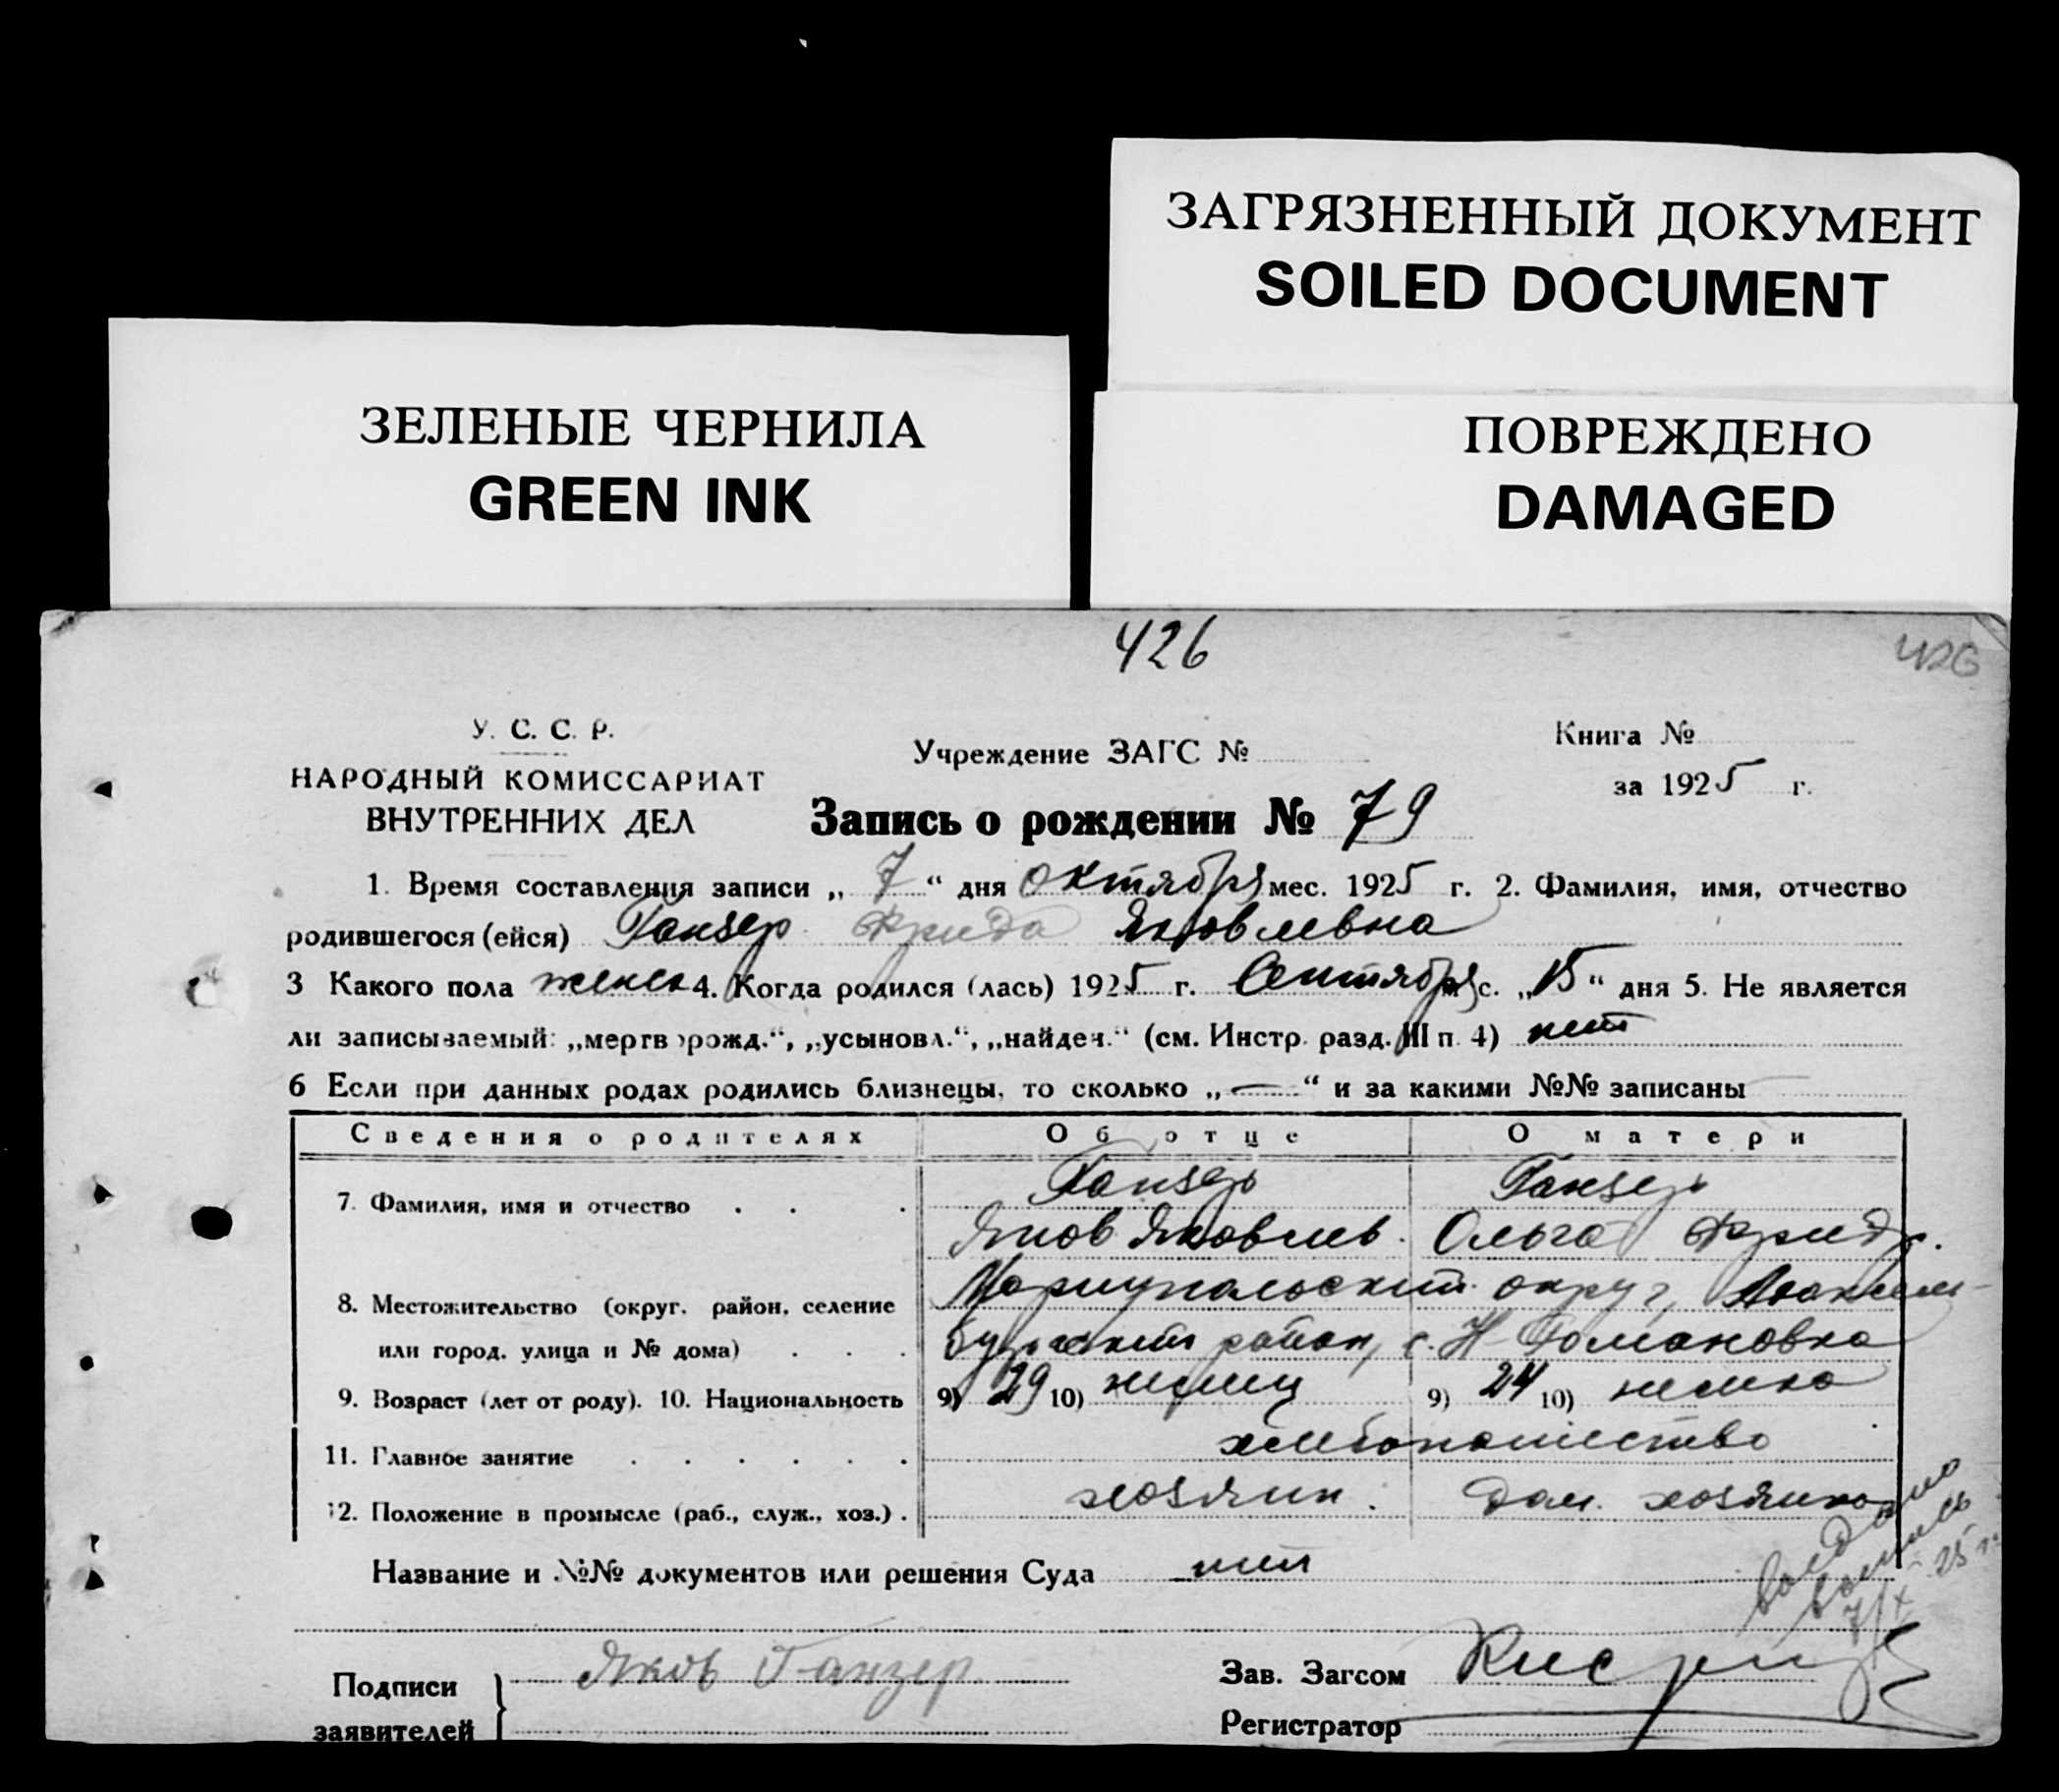 ЗАГРЯЗНЕННЫЙ ДОКУМЕНТ
SOILED DOCUMENT
ЗЕЛЕНЫЕ ЧЕРНИЛА
GREEN INK
ПОВРЕЖДЕНО
DAMAGED
426
426
У. С. С. Р.
НАРОДНЫЙ КОМИССАРИАТ
ВНУТРЕННИХ ДЕЛ
Учреждение ЗАГС №
Книга №
за 1925 г.
Запись о рождении № 79
1. Время составления записи „ 7 “ дня Октября мес. 1925 г. 2. Фамилия, имя, отчество
родившегося (ейся) Ганзер Фрида Яковлевна
3 Какого пола женск 4. Когда родился (лась) 1925 г. Сентября с. „15“ дня 5. Не является
ли записываемый: „мертворожд.“, „усыновл.“, „найден.“ (см. Инстр. разд. III п. 4) нет
6 Если при данных родах родились близнецы, то сколько „ — “ и за какими №№ записаны
Сведения о родителях Об отце О матери
7. Фамилия, имя и отчество . . . Ганзер Ганзер
Яков Яковлев. Ольга Фридр.
8. Местожительство (округ, район, селение Мариупольский округ, Люксем-
или город, улица и № дома) . . . бургский район, с. Н-Романовка
9. Возраст (лет от роду). 10. Национальность 9) 29 10) немец 9) 24 10) немка
11. Главное занятие . . . . . . хлебопашество
12. Положение в промысле (раб., служ., хоз.) . хозяин. Дом. хозяйка
Название и №№ документов или решения Суда нет
Выдана
выпись
7/X-25 г.
Подписи
заявителей
Яков Ганзер
Зав. Загсом
Регистратор